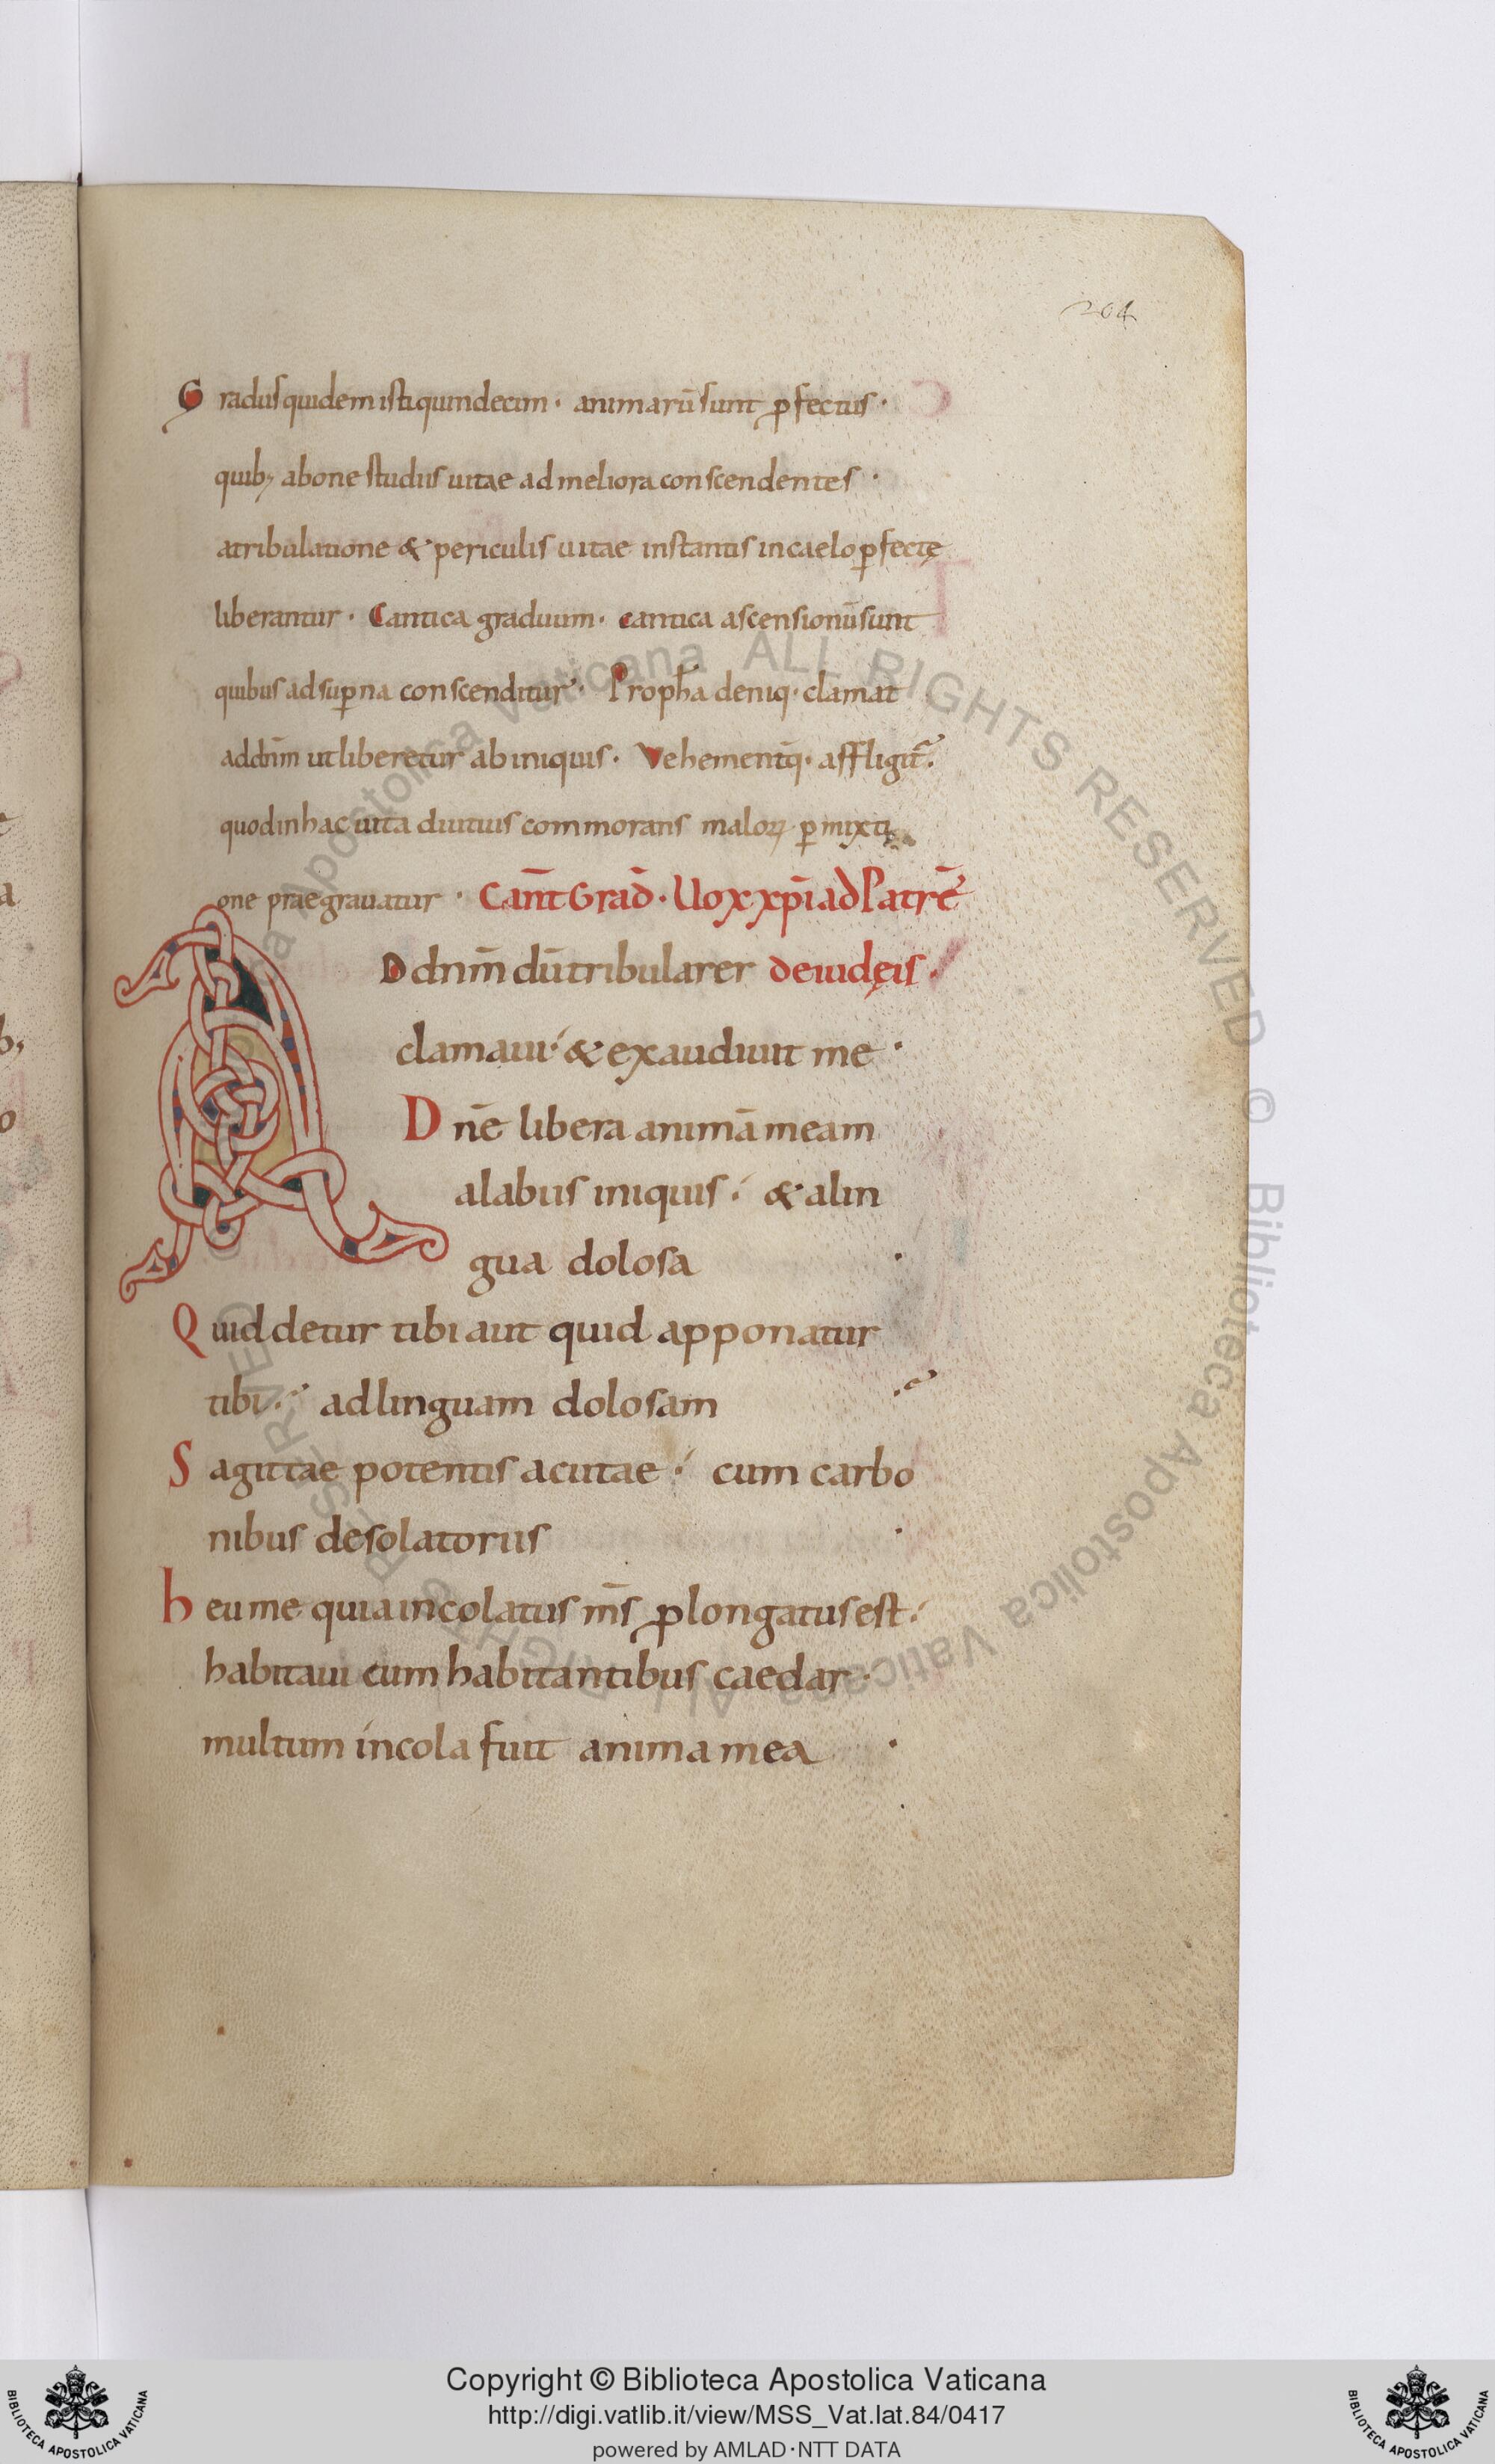 204
Gradus quidem isti quindecim · animarū sunt ꝓfectus ·
quib; a bone studiis uitae ad meliora conscendentes ·
a tribulatione & periculis uitae instantis in caelo ꝑfectę
liberantur · Cantica graduum · cantica ascensionū sunt
quibus ad suꝑna conscenditur · Propha deniq· clamat
ad dnm̄ ut liberetur ab iniquis · Vehementq̄· affligit᷑ ·
quod in hac uita diutius commorans maloꝝ ꝑmixti
one praegrauatur · Cant̄ Grad̄ · Uox xp̄i ad Patrē
AD dnm̄ dū tribularer de iudęis ·
clamaui & exaudiuit me ·
Dnē libera animā meam
a labiis iniquis & a lin
gua dolosa ·
Quid detur tibi aut quid apponatur
tibi ad linguam dolosam
Sagittae potentis acutae cum carbo
nibus desolatoriis ·
heu me quia incolatus ms̄ ꝓlongatus est
habitaui cum habitantibus caedar ·
multum incola fuit anima mea ·
© Biblioteca Apostolica Vaticana ALL RIGHTS RESERVED © Biblioteca Apostolica Vaticana ALL RIGHTS RESERVED
BIBLIOTECA APOSTOLICA VATICANA
Copyright © Biblioteca Apostolica Vaticana
http://digi.vatlib.it/view/MSS_Vat.lat.84/0417
powered by AMLAD·NTT DATA
BIBLIOTECA APOSTOLICA VATICANA